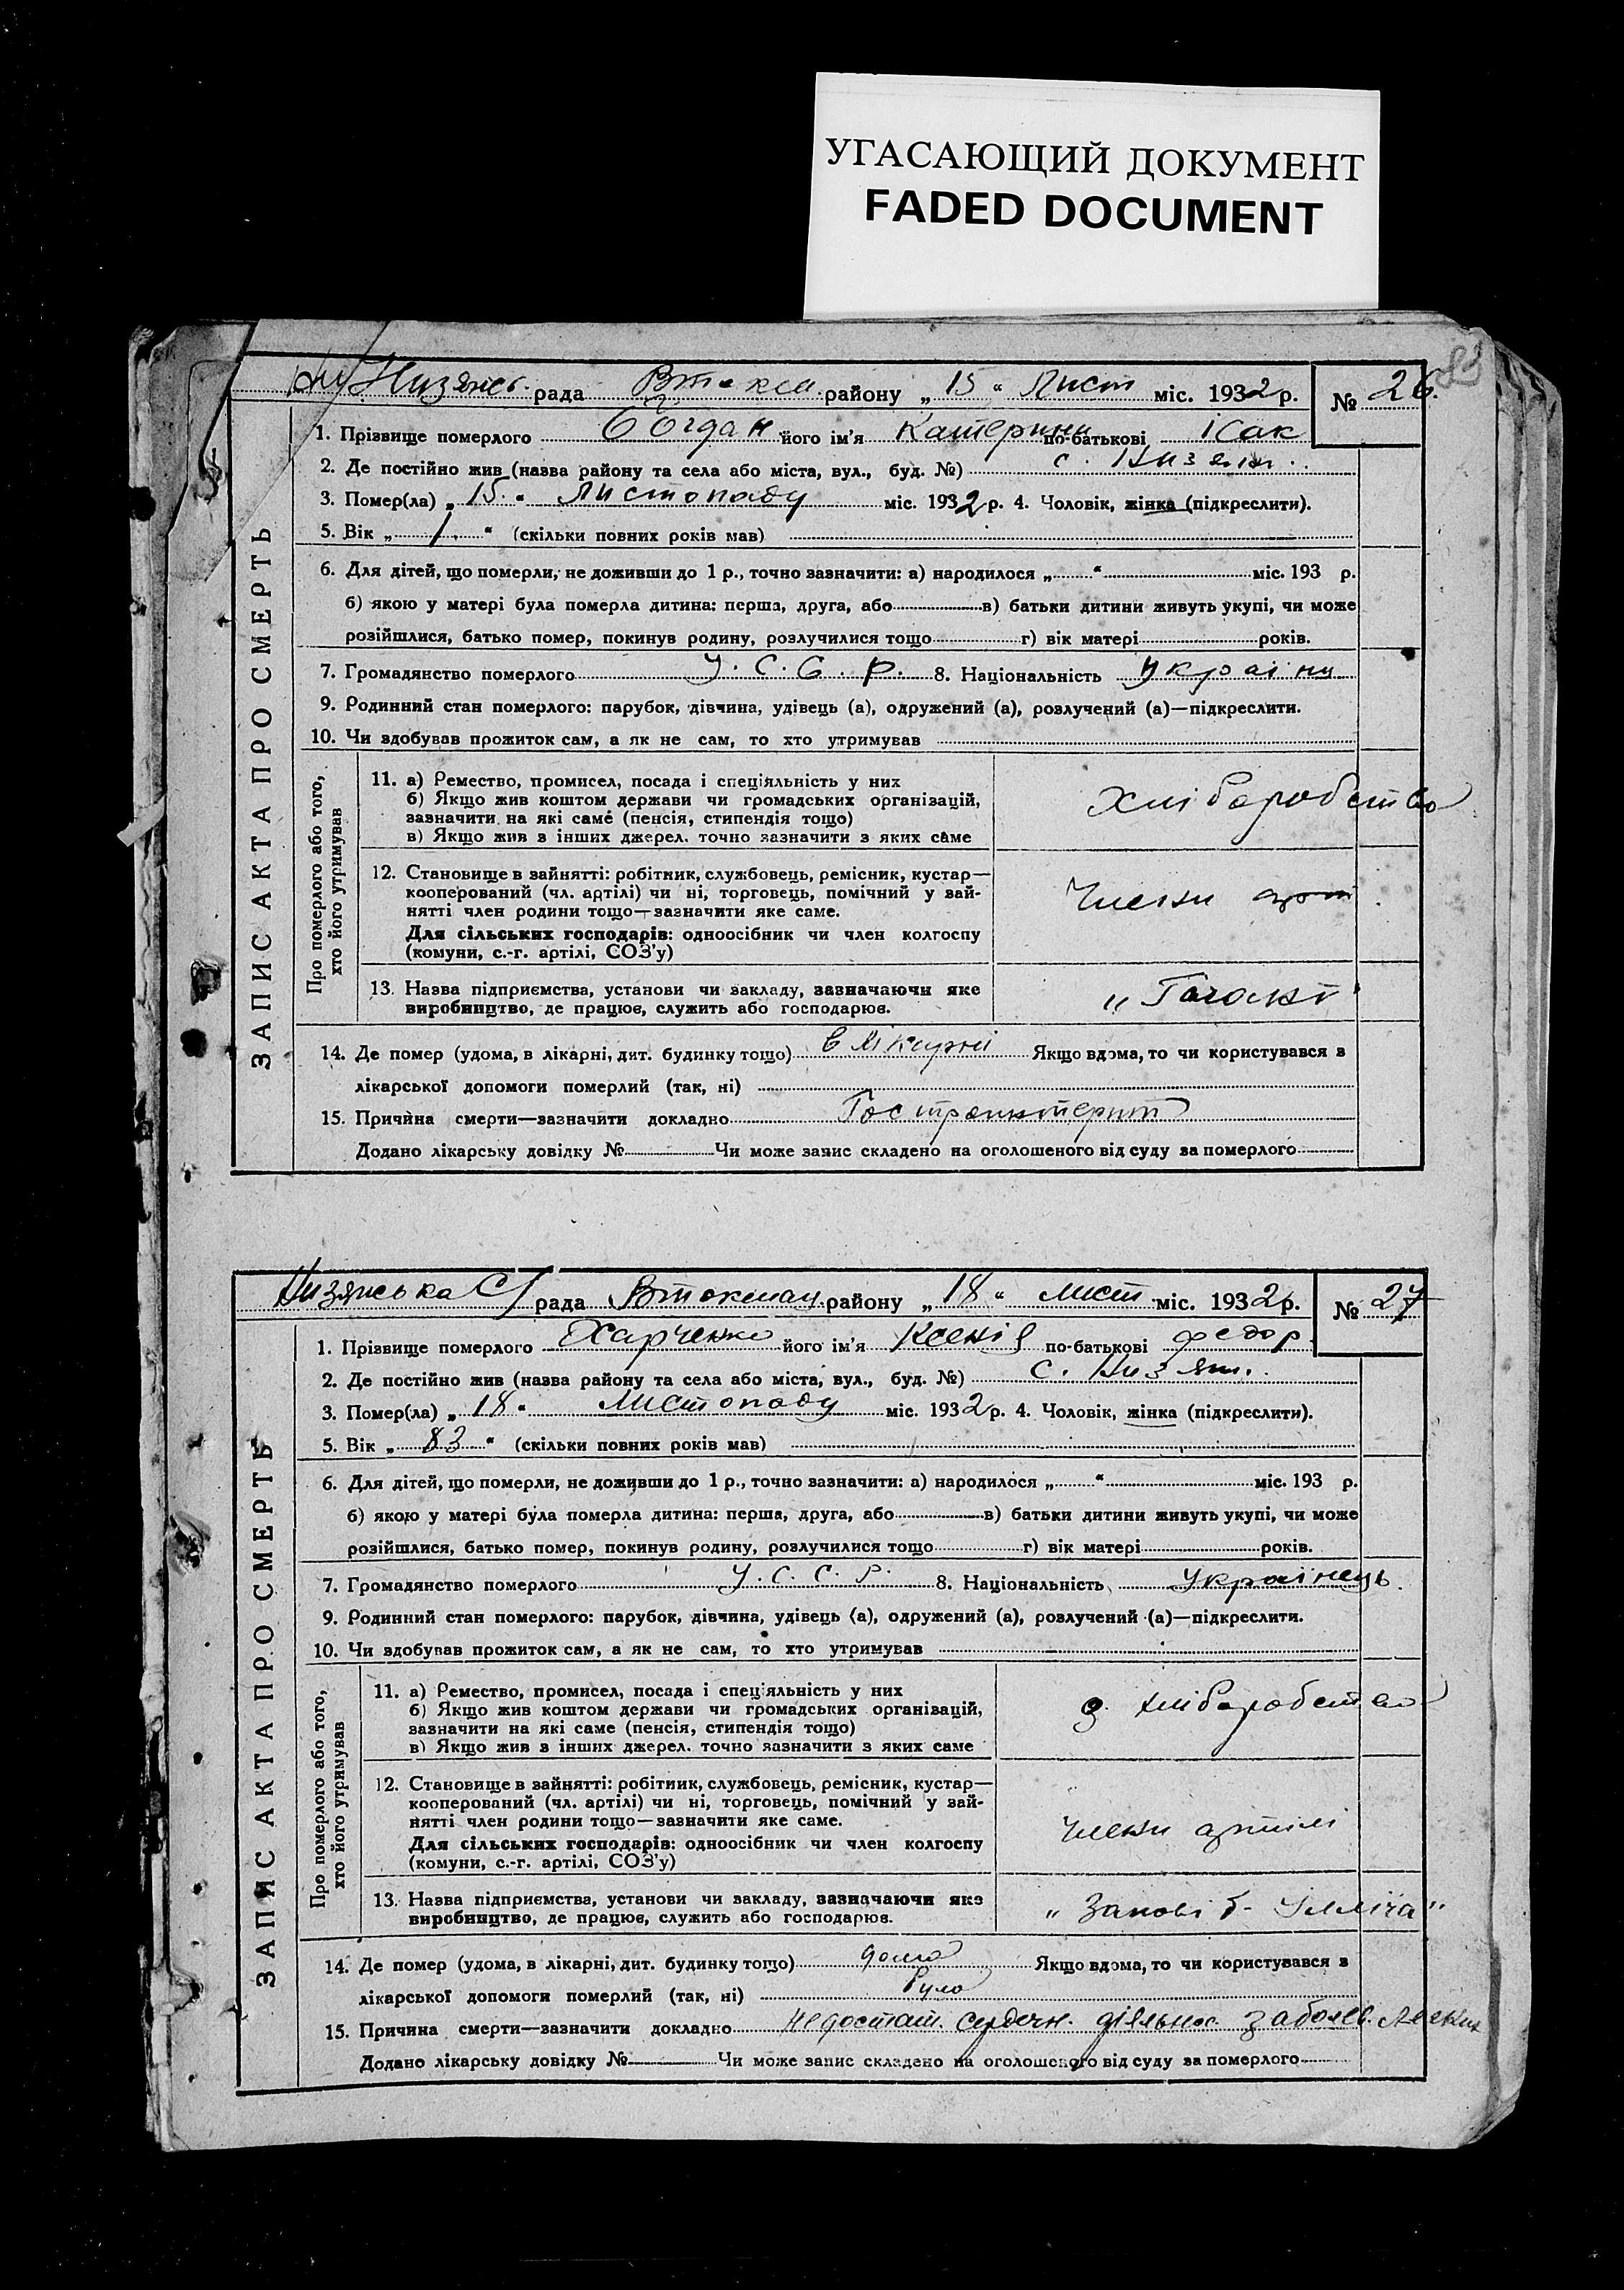 УГАСАЮЩИЙ ДОКУМЕНТ
FADED DOCUMENT
83
Низянсь. рада Втокм. району „15“ Лист міс. 1932 р. № 26.
ЗАПИС АКТА ПРО СМЕРТЬ
1. Прізвище померлого його ім'я Катерина по-батькові Ісак
2. Де постійно жив (назва району та села або міста, вул., буд. №) с. Низяни.
3. Помер(ла) „15.“ Листопаду міс. 1932 р. 4. Чоловік, жінка (підкреслити).
5. Вік „1.“ (скільки повних років мав)
6. Для дітей, що померли, не доживши до 1 р., точно зазначити: а) народилося „ “ міс. 193 р.
б) якою у матері була померла дитина: перша, друга, або в) батьки дитини живуть укупі, чи може
розійшлися, батько помер, покинув родину, розлучилися тощо г) вік матері років.
7. Громадянство померлого У. С. С. Р. 8. Національність Україн
9. Родинний стан померлого: парубок, дівчина, удівець (а), одружений (а), розлучений (а)—підкреслити.
10. Чи здобував прожиток сам, а як не сам, то хто утримував
Про померлого або того,
хто його утримував
11. а) Ремество, промисел, посада і спеціяльність у них
б) Якщо жив коштом держави чи громадських організацій,
зазначити на які саме (пенсія, стипендія тощо)
в) Якщо жив з інших джерел. точно зазначити з яких саме
хліборобство
12. Становище в зайнятті: робітник, службовець, ремісник, кустар—
кооперований (чл. артілі) чи ні, торговець, помічний у зай-
нятті член родини тощо—зазначити яке саме.
Для сільських господарів: одноосібник чи член колгоспу
(комуни, с.-г. артілі, СОЗ'у)
Члени арт.
13. Назва підприємства, установи чи закладу, зазначаючи яке
виробництво, де працює, служить або господарює.
14. Де помер (удома, в лікарні, дит. будинку тощо) в лікарні Якщо вдома, то чи користувався з
лікарської допомоги померлий (так, ні)
15. Причина смерти—зазначити докладно Гостроинтерит
Додано лікарську довідку № Чи може запис складено на оголошеного від суду за померлого
Низянська С/ рада Втокмац. району „18“ лист міс. 1932 р. № 27
ЗАПИС АКТА ПРО СМЕРТЬ
1. Прізвище померлого Харченко його ім'я Ксенія по-батькові Федор.
2. Де постійно жив (назва району та села або міста, вул., буд. №) с. Низян.
3. Помер(ла) „18“ Листопаду міс. 1932 р. 4. Чоловік, жінка (підкреслити).
5. Вік „83“ (скільки повних років мав)
6. Для дітей, що померли, не доживши до 1 р., точно зазначити: а) народилося „ “ міс. 193 р.
б) якою у матері була померла дитина: перша, друга, або в) батьки дитини живуть укупі, чи може
розійшлися, батько помер, покинув родину, розлучилися тощо г) вік матері років.
7. Громадянство померлого У. С. С. Р. 8. Національність Українець.
9. Родинний стан померлого: парубок, дівчина, удівець (а), одружений (а), розлучений (а)—підкреслити.
10. Чи здобував прожиток сам, а як не сам, то хто утримував
Про померлого або того,
хто його утримував
11. а) Ремество, промисел, посада і спеціяльність у них
б) Якщо жив коштом держави чи громадських організацій,
зазначити на які саме (пенсія, стипендія тощо)
в) Якщо жив з інших джерел. точно зазначити з яких саме
хліборобство
12. Становище в зайнятті: робітник, службовець, ремісник, кустар—
кооперований (чл. артілі) чи ні, торговець, помічний у зай-
нятті член родини тощо—зазначити яке саме.
Для сільських господарів: одноосібник чи член колгоспу
(комуни, с.-г. артілі, СОЗ'у)
члени артілі
13. Назва підприємства, установи чи закладу, зазначаючи яке
виробництво, де працює, служить або господарює.
„Запові т. Ілліча“
14. Де помер (удома, в лікарні, дит. будинку тощо) дома Якщо вдома, то чи користувався з
лікарської допомоги померлий (так, ні)
15. Причина смерти—зазначити докладно недостат. сердечн. діяльнос. заболев. легких
Додано лікарську довідку № Чи може запис складено на оголошеного від суду за померлого